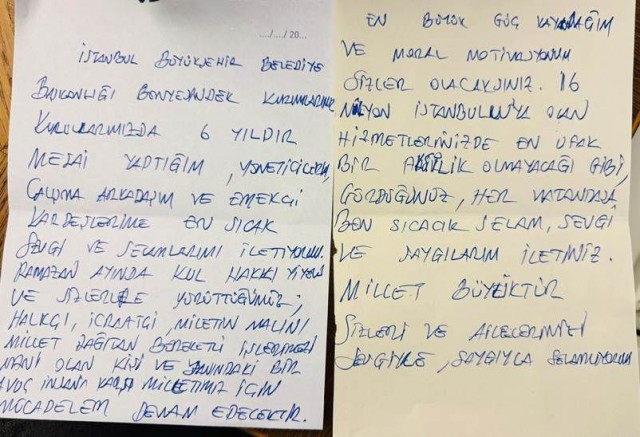 ..../..../ 20...
İSTANBUL BÜYÜKŞEHİR BELEDİYE
BAŞKANLIĞI BÜNYESİNDEKİ KURUMLARIMIZ
KURULARIMIZDA 6 YILDIR
MESAİ YAPTIĞIM, YÖNETİCİLERİM,
ÇALIŞMA ARKADAŞIM VE EMEKÇİ
KARDEŞLERİME EN SICAK
SEVGİ VE SELAMLARIMI İLETİYORUM.
RAMAZAN AYINDA KUL HAKKI YİYEN
VE SİZLERLE YÜRÜTTÜĞÜMÜZ;
HALKÇI, İCRAATÇI, MİLLETİN MALINI
MİLLET DAĞITAN BEREKETLİ İŞLERİMİZİ
MANİ OLAN KİŞİ VE YANINDAKİ BİR
AVUÇ İNSANA KARŞI MİLLETİMİZ İÇİN
MÜCADELEM DEVAM EDECEKTİR.
EN BÜYÜK GÜÇ KAYNAĞIM
VE MORAL MOTİVASYONUM
SİZLER OLACAKSINIZ. 16
MİLYON İSTANBULLUYA OLAN
HİZMETLERİNİZDE EN UFAK
BİR OLMAYACAĞI GİBİ,
GÖRDÜĞÜNÜZ, HER VATANDAŞA
BEN SICACIK SELAM, SEVGİ
VE SAYGILARIM İLETİNİZ.
MİLLET BÜYÜKTÜR
SİZLERİ VE AİLELERİNİZİ
SEVGİYLE, SAYGIYLA SELAMLIYORUM